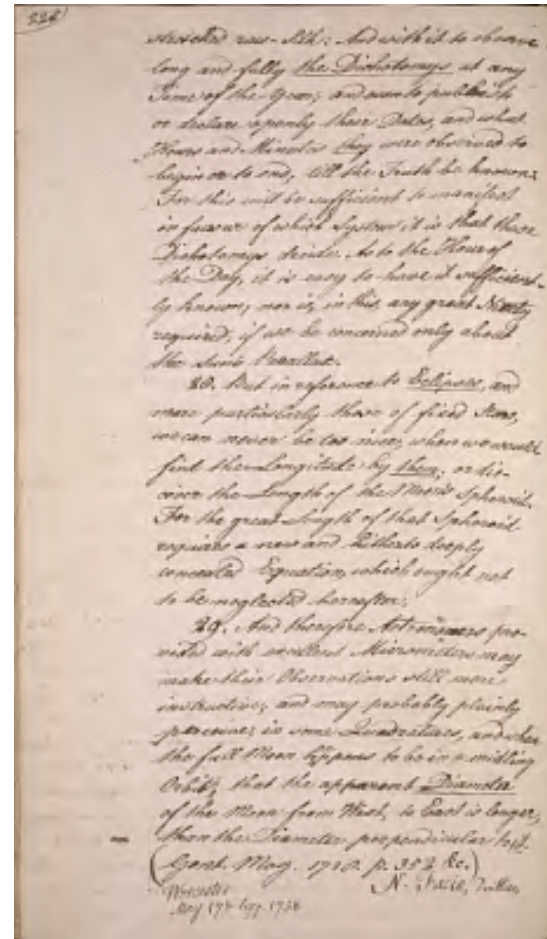 224
stretched raw-Silk: And with it to observe
long and fully the Dichotomys at any
Time of the Year; and even to publish
or declare openly their Dates, and what
Hours and Minutes they were observed to
begin or to end, till the Truth be known:
For this will be sufficient to manifest
in favour of which System it is that those
Dichotomys decide. As to the Hour of
the Day, it is easy to have it sufficient-
ly known; nor is, in this, any great Nicety
required, if we be concerned only about
the Sun's Parallax.
28. But in reference to Eclipses, and
more particularly those of fixed Stars,
we can never be too nice, when we would
find the Longitude by them; or dis-
cover the Length of the Moon's Spheroid.
For the great Length of that Spheroid
requires a new and hitherto deeply
concealed Equation, which ought not
to be neglected hereafter.
29. And therefore Astronomers pro-
vided with excellent Micrometers may
make their Observations still more
instructive; and may probably plainly
perceive, in some Quadratures, and when
the full Moon appears to be in a midling
Orbit, that the apparent Diameter
of the Moon from West, to East is longer,
than the Diameter perpendicular to it.
(Gent. Mag. 1738. p. 352 &c.)
N. Facio, Duillier
Worcester
May 1738